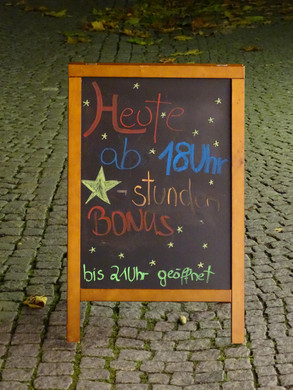 Heute
ab 18Uhr
stunden
BONUS
bis 21Uhr geöffnet